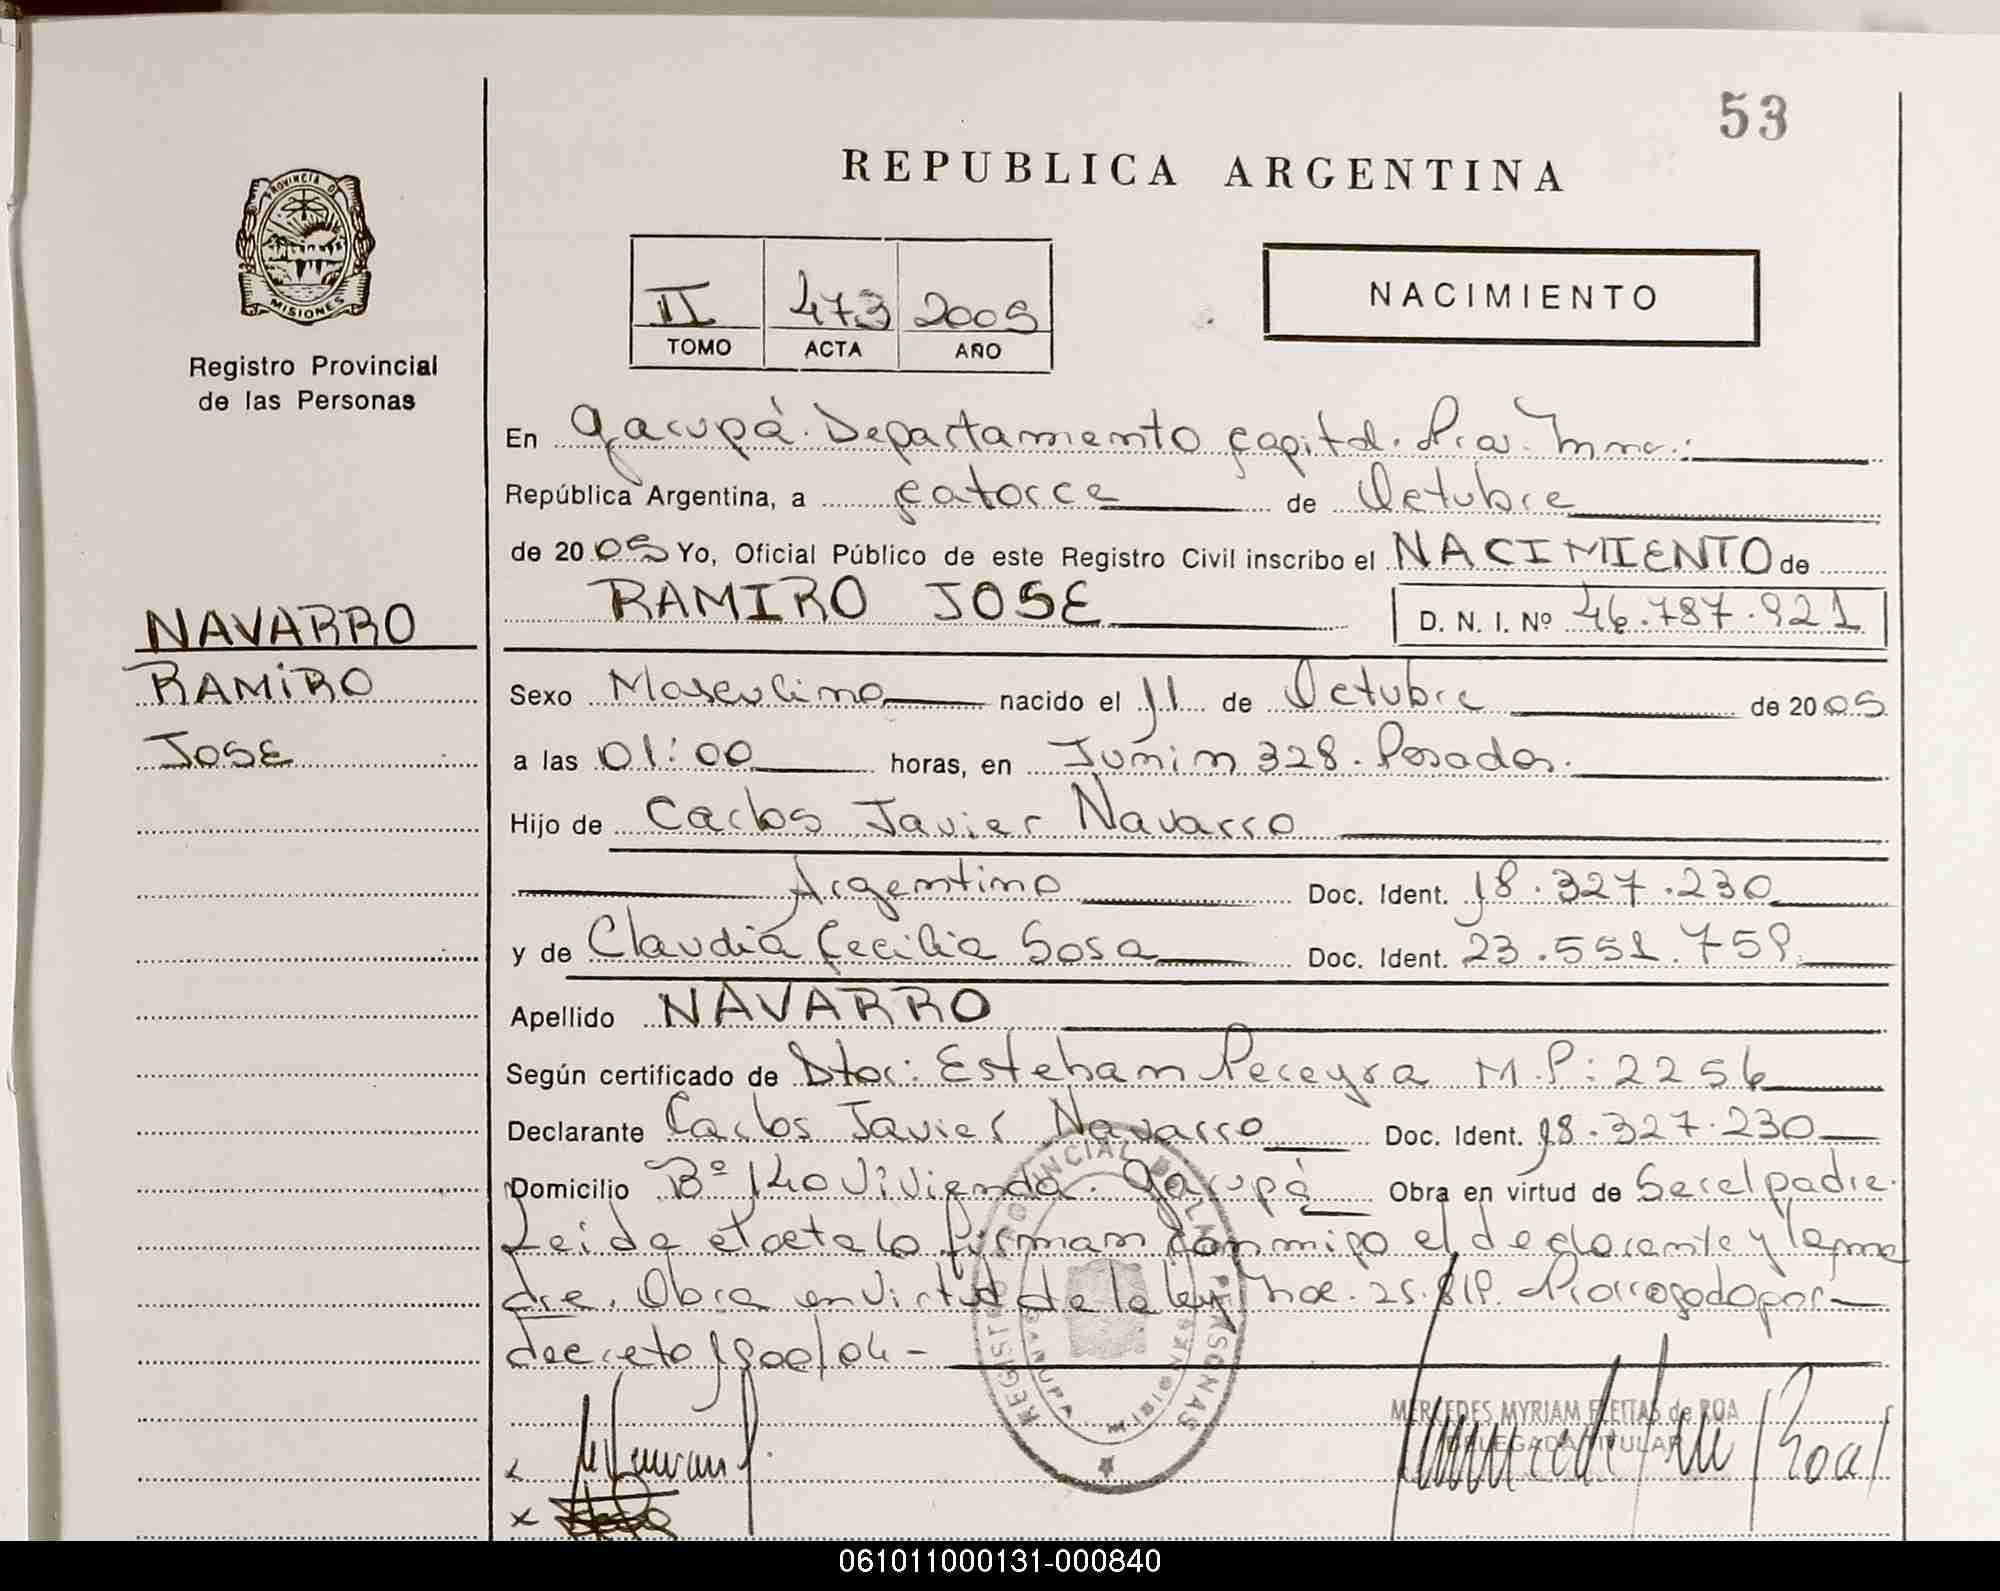 53
REPUBLICA ARGENTINA
PROVINCIA DE
MISIONES
Registro Provincial
de las Personas
II 473 2005
TOMO ACTA AÑO
NACIMIENTO
En Garupá. Departamento Capital. Pcia. Mnes:
República Argentina, a catorce de Octubre
de 2005 Yo, Oficial Público de este Registro Civil inscribo el NACIMIENTO de
RAMIRO JOSE D. N. I. Nº 46.787.921
NAVARRO
RAMIRO
JOSE
Sexo Masculino nacido el 11 de Octubre de 2005
a las 01:00 horas, en Junin 328. Posadas.
Hijo de Carlos Javier Navarro
Argentino Doc. Ident. 18.327.230
y de Claudia Cecilia Sosa Doc. Ident. 23.551.759
Apellido NAVARRO
Según certificado de Dtor: Esteban Pereyra M.P: 2256
Declarante Carlos Javier Navarro Doc. Ident. 18.327.230
Domicilio Bº 140 Vivienda. Garupá Obra en virtud de Ser el padre.
Leida el acta lo firman conmigo el declarante y la ma
dre. Obra en virtud de la ley nac. 25.819. Prorrogado por
decreto 1900/04-
REGISTRO PROVINCIAL DE LAS PERSONAS
MISIONES
MERCEDES MYRIAM FLEITAS de ROA
DELEGADA TITULAR
x
x
061011000131-000840